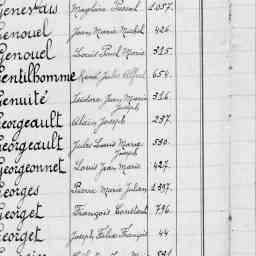 Genestais Magloire Pascal 1057.
Genouel Jean Marie Michel 426.
Genouel Louis Paul Marie 315.
Gentilhomme René Jules Alfred 654.
Genuité Isidore Jean Marie Joseph 316.
Georgeault Alain Joseph 237.
Georgeault Jules Louis Marie Joseph 530.
Georgeonnet Louis Jean Marie 427.
Georges Pierre Marie Julien 1397.
Georget François Constant 796.
Georget Joseph Félix François 44